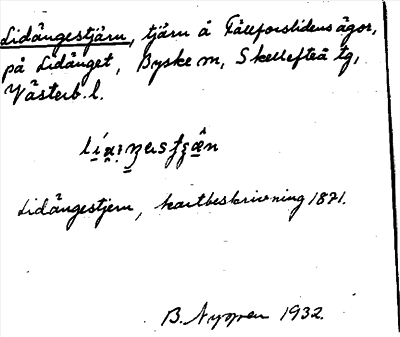 Lidångestjärn, tjärn å Fällforslidens ägor,
på Lidånget, Byske sn, Skellefteå tg,
Västerb. l.
Lidångestjern, kartbeskrivning 1871.
B. Nyppen 1932.